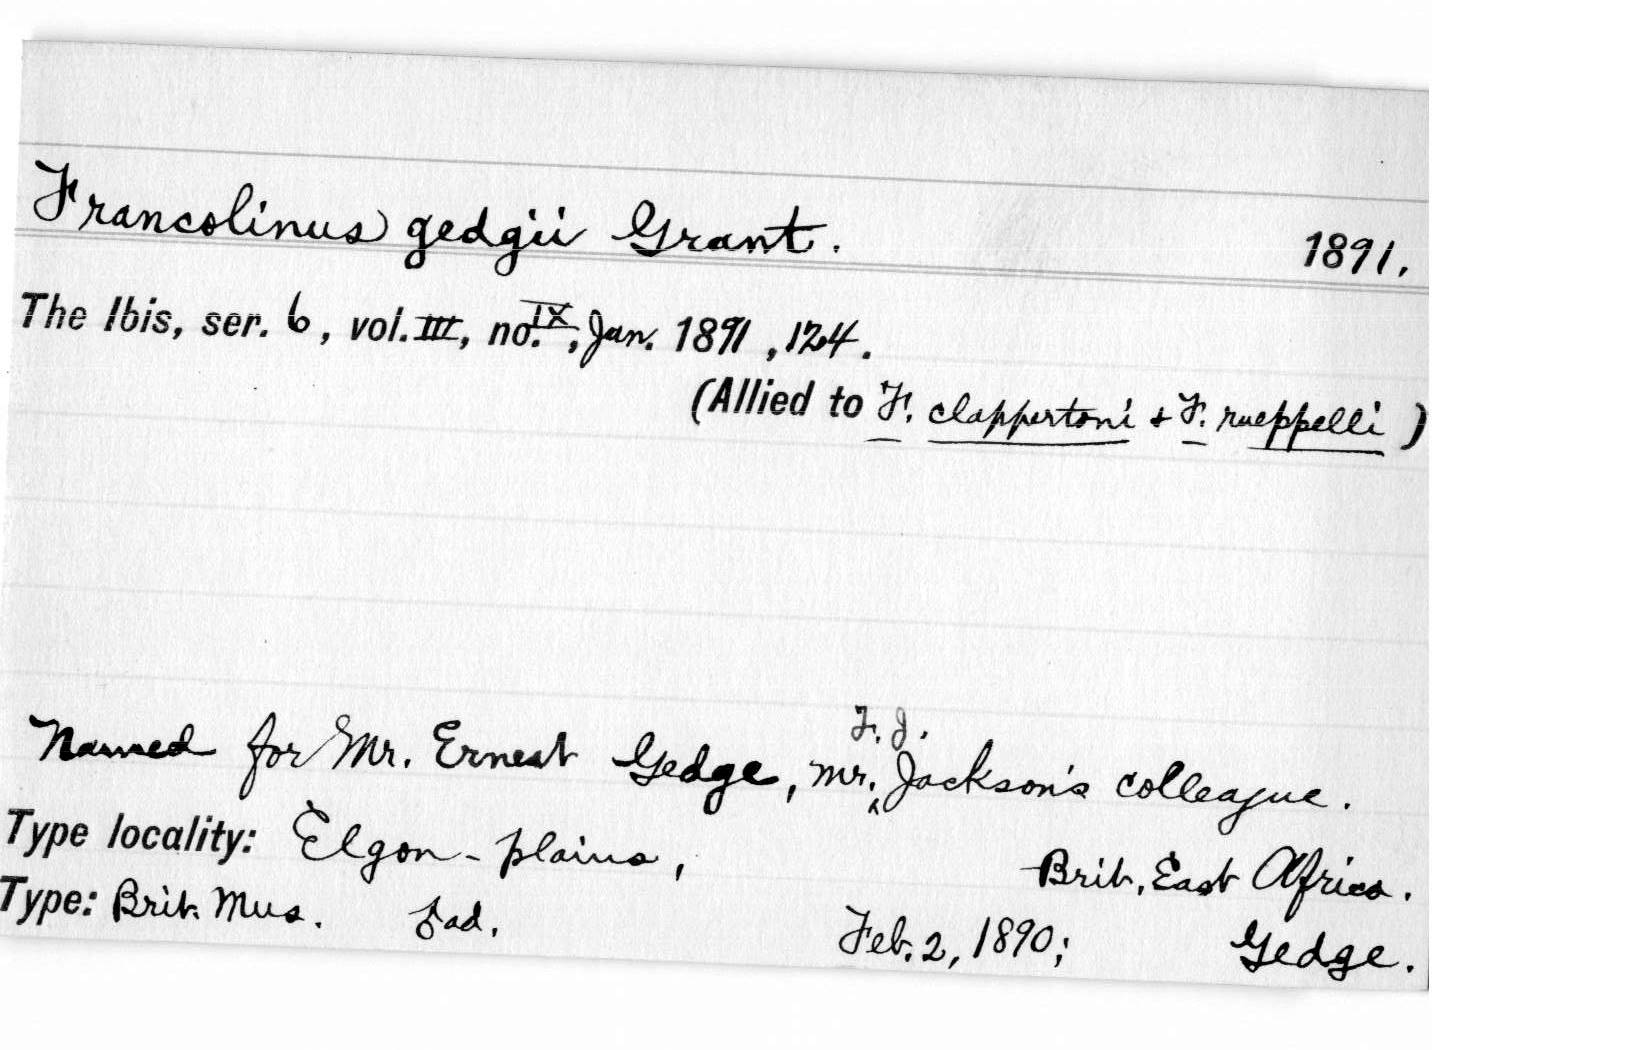 Francolinus gedgii Grant. 1891.
The Ibis, ser. 6, vol. III, no. IX, Jan. 1891, 124.
(Allied to F. clappertoni & F. rueppelli)
Named for Mr. Ernest Gedge, Mr. F. J. Jackson's colleague.
Type locality: Elgon-plains, Brit. East Africa.
Type: Brit. Mus. ♂ad. Feb. 2, 1890; Gedge.